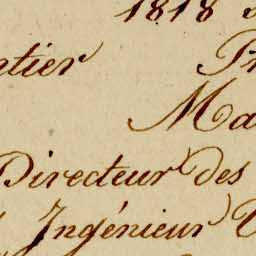 1818
ntier
Ma
Directeur des
Ingénieur